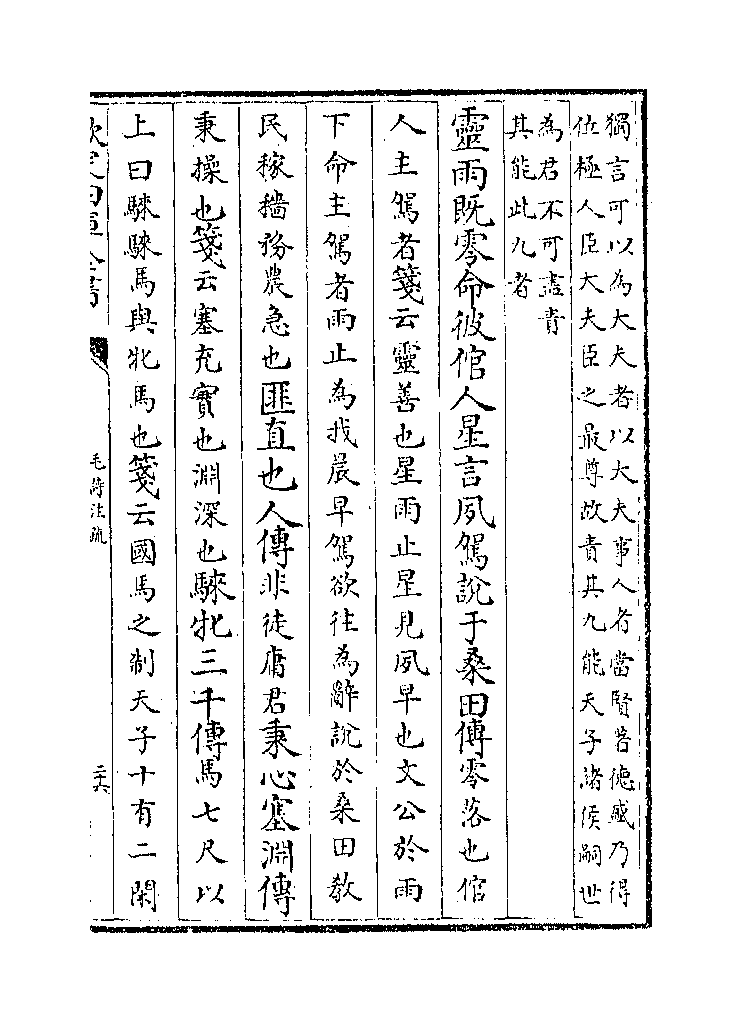 獨言可以為大夫者以大夫事人者當賢著德盛乃得
位極人臣大夫臣之最尊故責其九能天子諸侯嗣世
為君不可盡責
其能此九者
靈雨既零命彼倌人星言夙駕說于桑田傳零落也倌
人主駕者箋云靈善也星雨止星見夙早也文公於雨
下命主駕者雨止為我晨早駕欲往為辭說於桑田教
民稼穡務農急也匪直也人傳非徒庸君秉心塞淵傳
秉操也箋云塞充實也淵深也騋牝三千傳馬七尺以
上曰騋騋馬與牝馬也箋云國馬之制天子十有二閑
欽定四庫全書
毛詩注疏
二十六